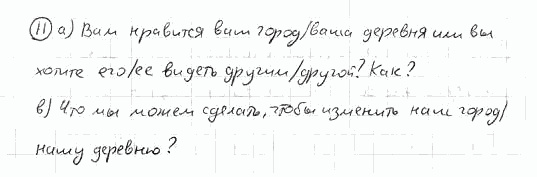 11 а) Вам нравится ваш город/ваша деревня или вы
хотите его/ее видеть другим/другой? Как?
в) Что мы можем сделать, чтобы изменить наш город/
нашу деревню?